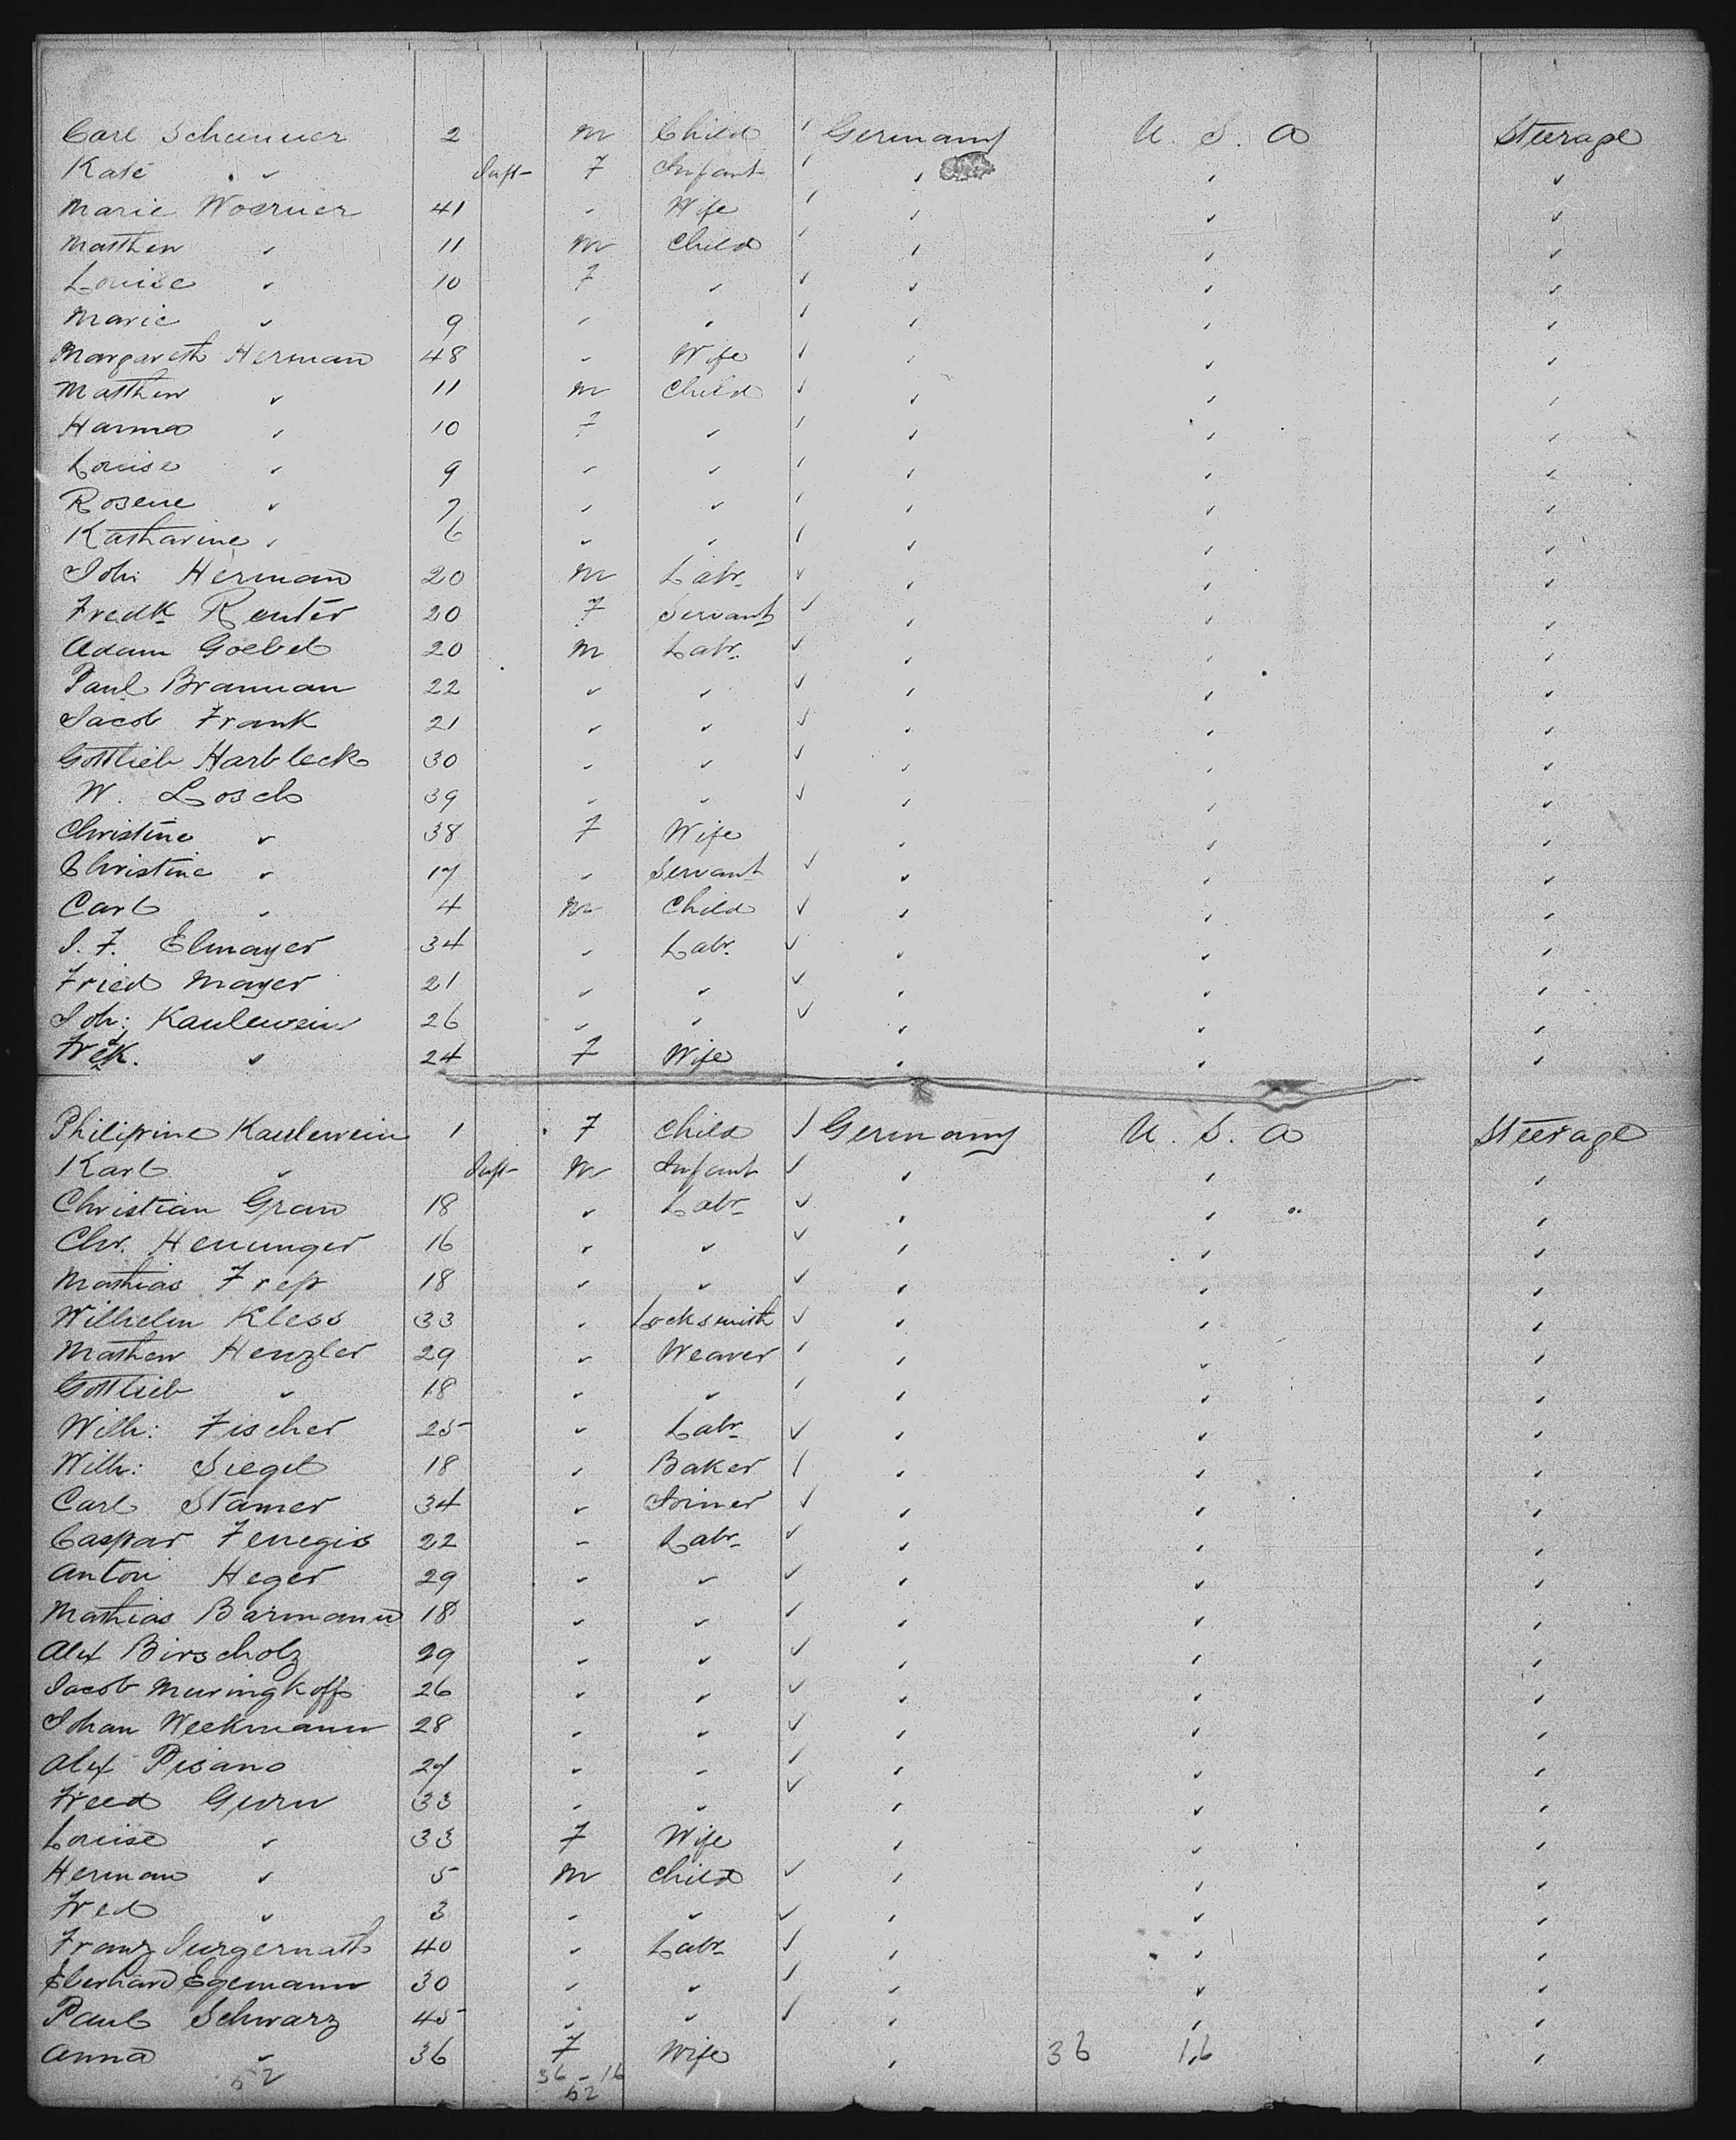 Carl Schauuer 2 m Child Germany U. S. A Steerage
Kate " Inft 7 Infant " " "
Marie Woerner 41 " Wife " " "
Matthew " 11 m Child " " "
Louise " 10 7 " " " "
Marie " 9 " " " " "
Margareth Herman 48 " Wife " " "
Matthew " 11 m Child " " "
Hanna " 10 7 " " " "
Louise " 9 " " " " "
Rosene " 7 " " " " "
Katharine " 6 " " " " "
Joh: Herman 20 m Labr " " "
Fredk Reuter 20 7 Servant " " "
Adam Goebel 20 m Labr " " "
Paul Brannan 22 " " " " "
Jacob Frank 21 " " " " "
Gottlieb Harbleck 30 " " " " "
W. Losch 39 " " " " "
Christine " 38 7 Wife " " "
Christine " 17 " Servant " " "
Carl " 4 m Child " " "
J. F. Elmayer 34 " Labr " " "
Fried Mayer 21 " " " " "
Joh: Kaulewein 26 " " " " "
Frdk. " 24 7 Wife " " "
Philipine Kaulewein 1 7 Child Germany U. S. A Steerage
Karl " Inft m Infant " " "
Christian Grau 18 " Labr " " "
Chr. Henunger 16 " " " " "
Mathias 18 " " " " "
Wilhelm Kless 33 " Locksmith " " "
Mathew Henzler 29 " Weaver " " "
Gottlieb " 18 " " " " "
Wilh: Fischer 25 " Labr " " "
Wilh: Siegel 18 " Baker " " "
Carl Stamer 34 " Joiner " " "
Caspar Fenegis 22 " Labr " " "
Anton Heger 29 " " " " "
Mathias Barmann 18 " " " " "
Alex Birscholz 29 " " " " "
Jacob Muringkoff 26 " " " " "
Johan Weekmann 28 " " " " "
Alex Pisano 27 " " " " "
Fred 33 " " " " "
Louise " 33 7 Wife " " "
Herman " 5 m Child " " "
Fred " 3 " " " " "
Franz 40 " Labr " " "
Eberhard Egemann 30 " " " " "
Paul Schwarz 45 " " " " "
Anna " 36 7 Wife " 36 16 "
52 36 - 16
52